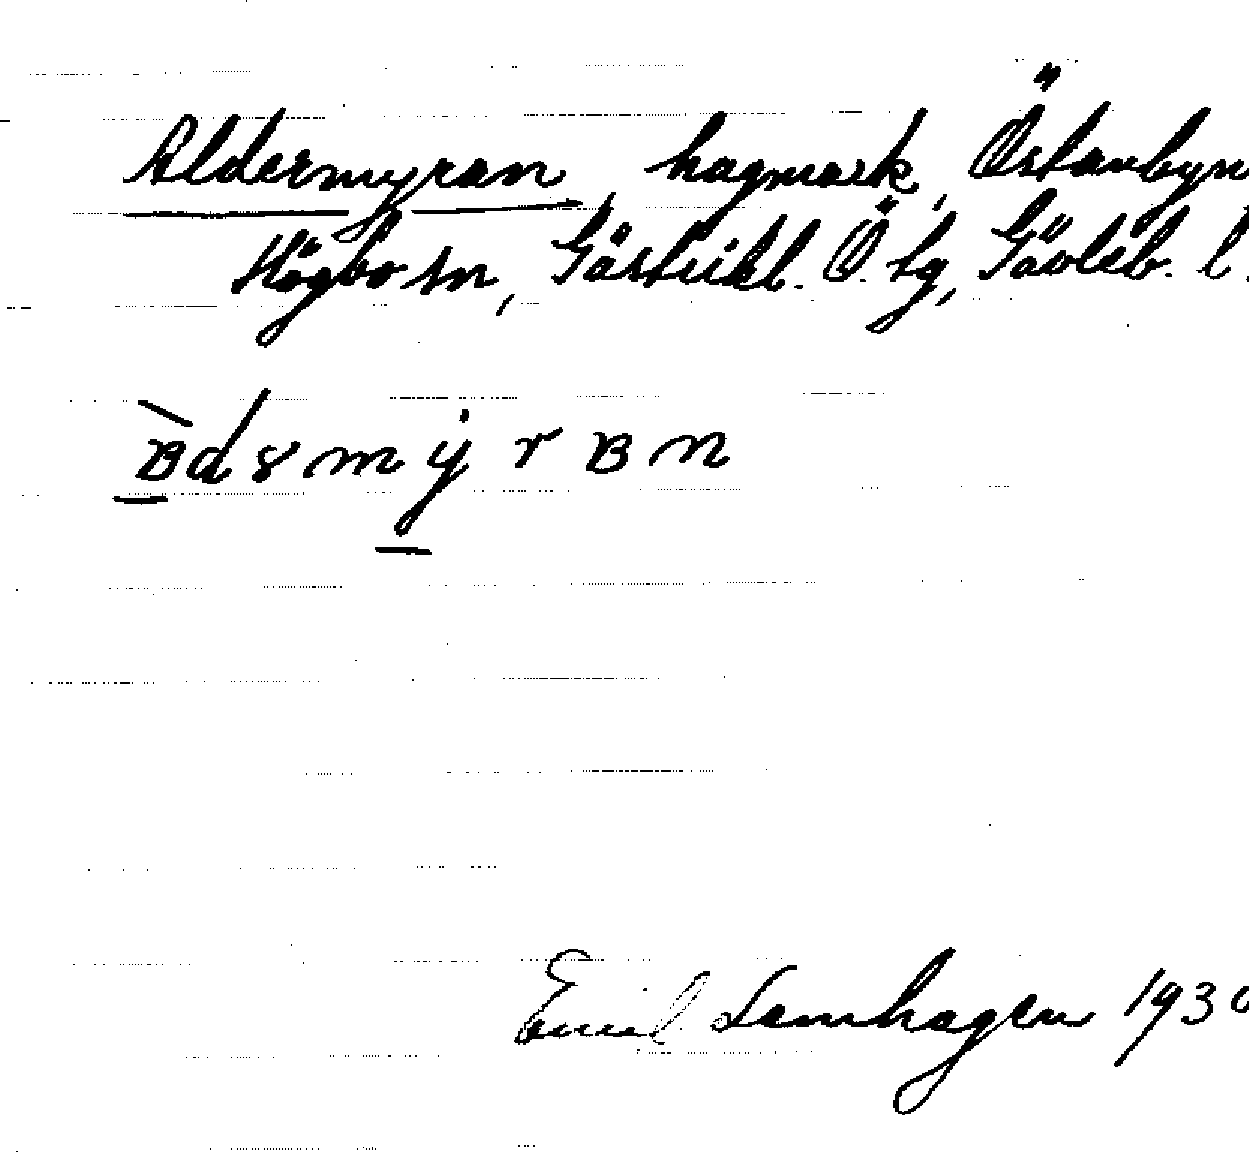 Aldermyran, hagmark, Östanbyn
Högbo sn, Gästrikl. Ö. tg, Gävleb. l.
Emil Lamhagen 1930